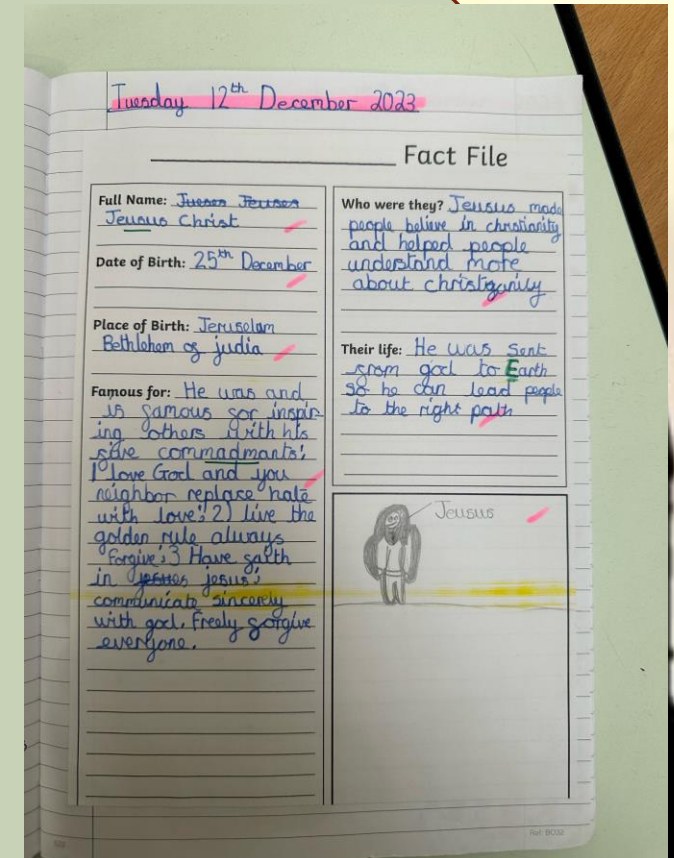 Tuesday 12th December 2023
Fact File
Full Name: Jueses Jeuses
Jeusus Christ
Date of Birth: 25th December
Place of Birth: Jeruselam
Bethlehem of judia
Famous for: He was and
is famous for inspir
ing others with his
five commadmants;
1 love God and you
neighbor replace hate
with love; 2) live the
golden rule always
Forgive; 3 Have faith
in jesus;
communicate sincerely
with god. Freely forgive
everyone.
Who were they? Jeusus made
people believe in christianity
and helped people
understand more
about christiganity
Their life: He was sent
from god to Earth
so he can lead people
to the right path
Jeusus